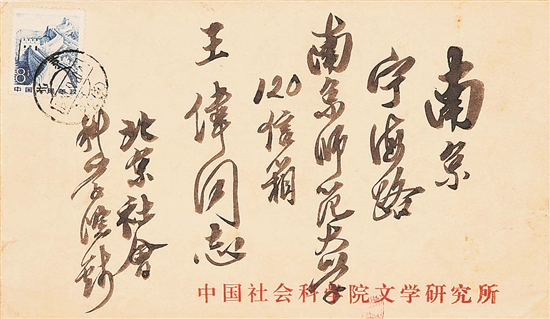 南京
宁海路
南京师范大学
120信箱
王偉同志
北京社会
科学院钱
中国社会科学院文学研究所
8
中国人民邮政